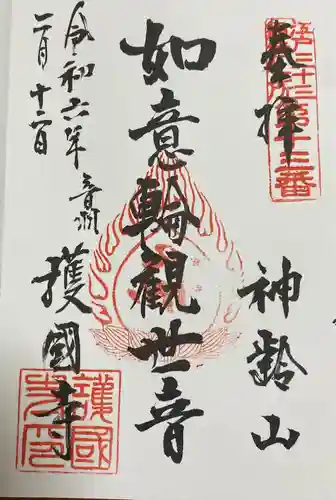 奉拝
江戸三十三所第十三番
神齢山
如意輪観世音
令和六年
二月十二日
音羽
護國寺